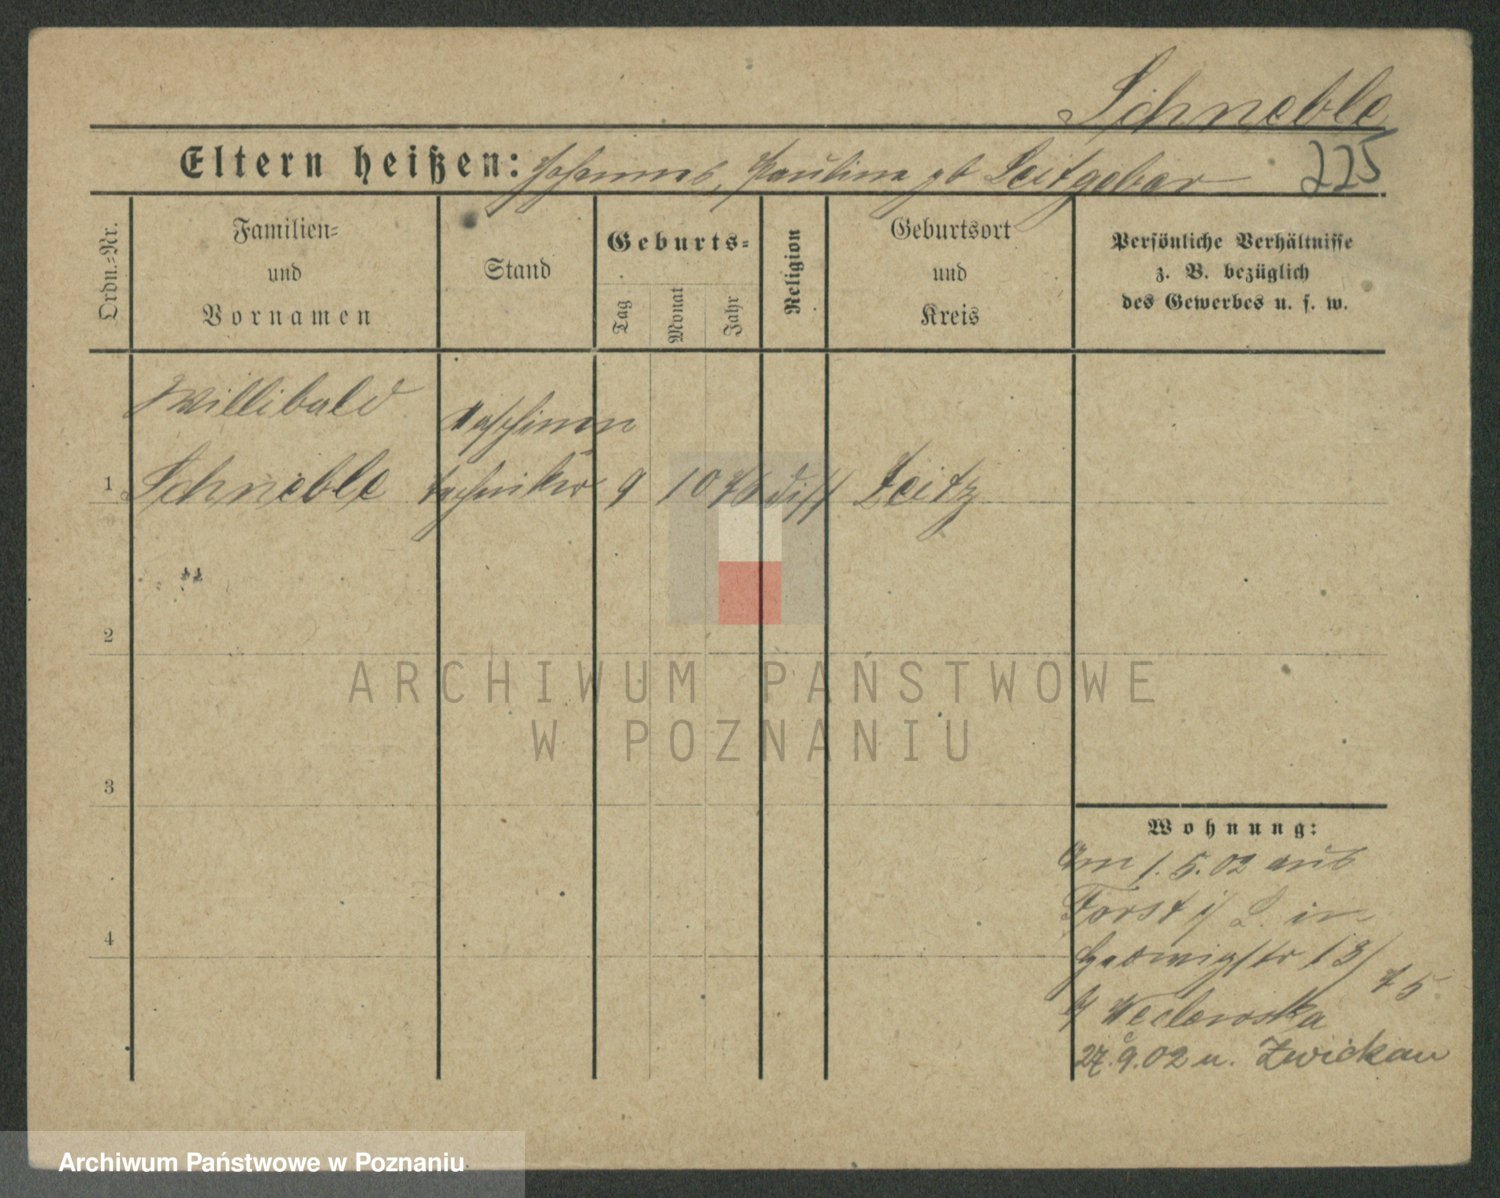 Schneble
Eltern heißen: Johannes, Paulina gb Leitgeber
225
Ordn.-Nr.
Familien-
und
Vornamen
Stand
Geburts-
Tag
Monat
Jahr
Religion
Geburtsort
und
Kreis
Persönliche Verhältnisse
z. B. bezüglich
des Gewerbes u. s. w.
Willibald
Maschinen
1 Schneble techniker 9 10 76 diss Zeitz
2
3
4
Wohnung:
Am 1.5.02 aus
Forst i/L. in
Hedwigstr 13/
b/ Weclewska 75
27.9.02 n. Zwickau
ARCHIWUM PAŃSTWOWE
W POZNANIU
Archiwum Państwowe w Poznaniu